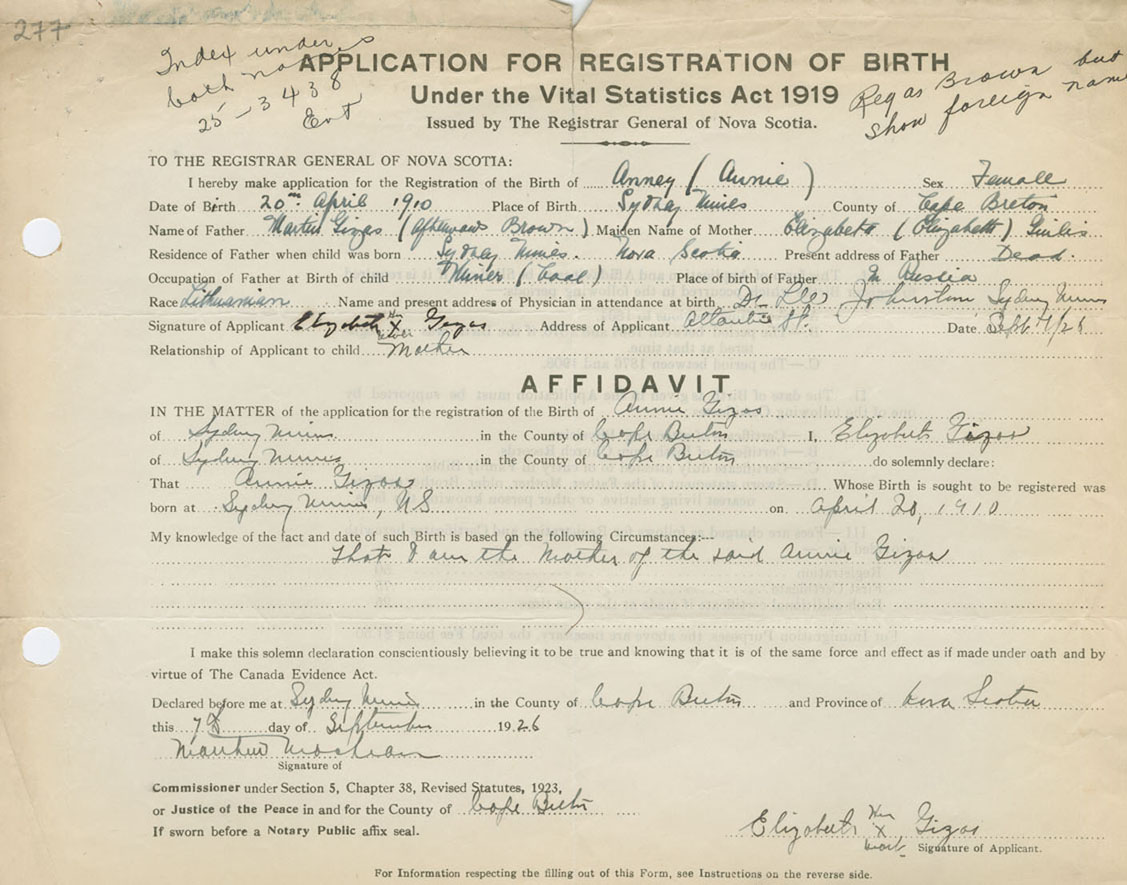 277
Index under
both names
25-3438
Ent
Reg as Brown but
show foreign name
APPLICATION FOR REGISTRATION OF BIRTH
Under the Vital Statistics Act 1919
Issued by The Registrar General of Nova Scotia.
TO THE REGISTRAR GENERAL OF NOVA SCOTIA:
I hereby make application for the Registration of the Birth of Anney (Annie) Sex Femall
Date of Birth 20 April 1910 Place of Birth Sydney Mines County of Cape Breton
Name of Father Martin Gizas (afterwards Brown) Maiden Name of Mother Elizabeth (Elizabeth)
Residence of Father when child was born Sydney Mines. Nova Scotia Present address of Father Dead.
Occupation of Father at Birth of child Miner (Coal) Place of birth of Father In Russia
Race Lithuanian Name and present address of Physician in attendance at birth Dr. Johnston Sydney Mines
Signature of Applicant Elizabeth her X Gizas Address of Applicant Atlantic St. Date Sept 7/26
Relationship of Applicant to child Mother
AFFIDAVIT
IN THE MATTER of the application for the registration of the Birth of Annie Gizas
of Sydney Mines in the County of Cape Breton I, Elizabeth Gizas
of Sydney Mines in the County of Cape Breton do solemnly declare:
That Annie Gizas Whose Birth is sought to be registered was
born at Sydney Mines, NS on April 20, 1910
My knowledge of the fact and date of such Birth is based on the following Circumstances:---
That I am the Mother of the said Annie Gizas
I make this solemn declaration conscientiously believing it to be true and knowing that it is of the same force and effect as if made under oath and by
virtue of The Canada Evidence Act.
Declared before me at Sydney Mines in the County of Cape Breton and Province of Nova Scotia
this 7th day of September 1926
Matthew
Signature of
Commissioner under Section 5, Chapter 38, Revised Statutes, 1923,
or Justice of the Peace in and for the County of Cape Breton
If sworn before a Notary Public affix seal.
Elizabeth Her X mark Gizas
Signature of Applicant.
For Information respecting the filling out of this Form, see Instructions on the reverse side.